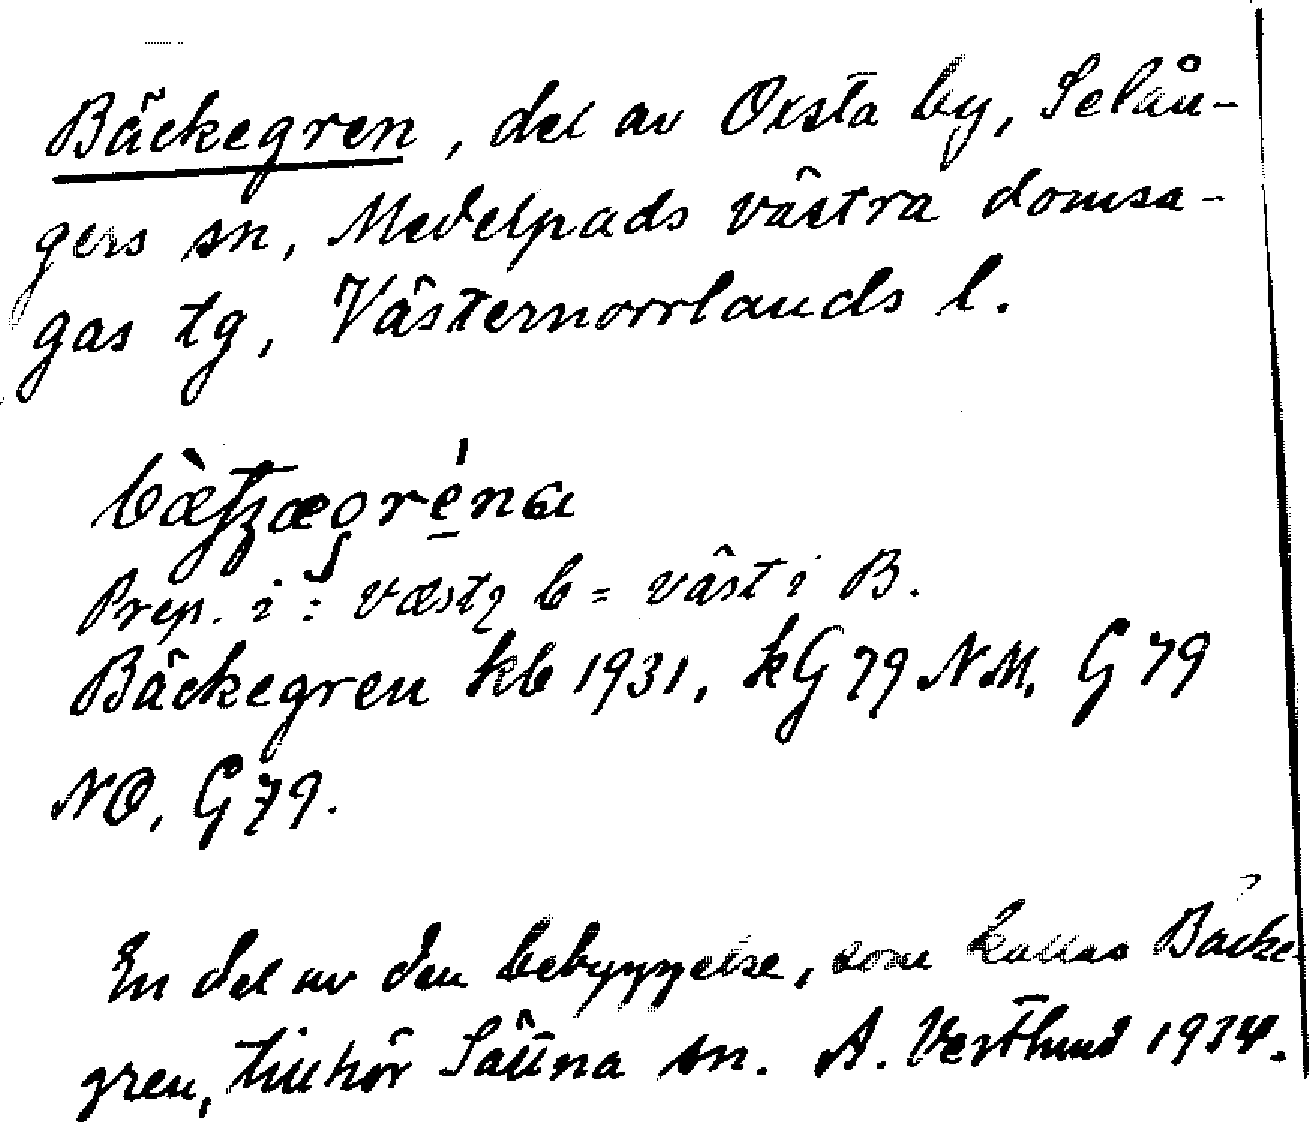 Bäckegren, del av Orsta by, Selån-
gers sn, Medelpads västra domsa-
gas tg, Västernorrlands l.
Prep. i: væstı b = väst i B.
Bäckegren kb 1931, kG 79 NM, G 79
NO, G 79.
En del av den bebyggelse, som kallas Bäcke-
gren, tillhör Sättna sn. A. Vestlund 1934.